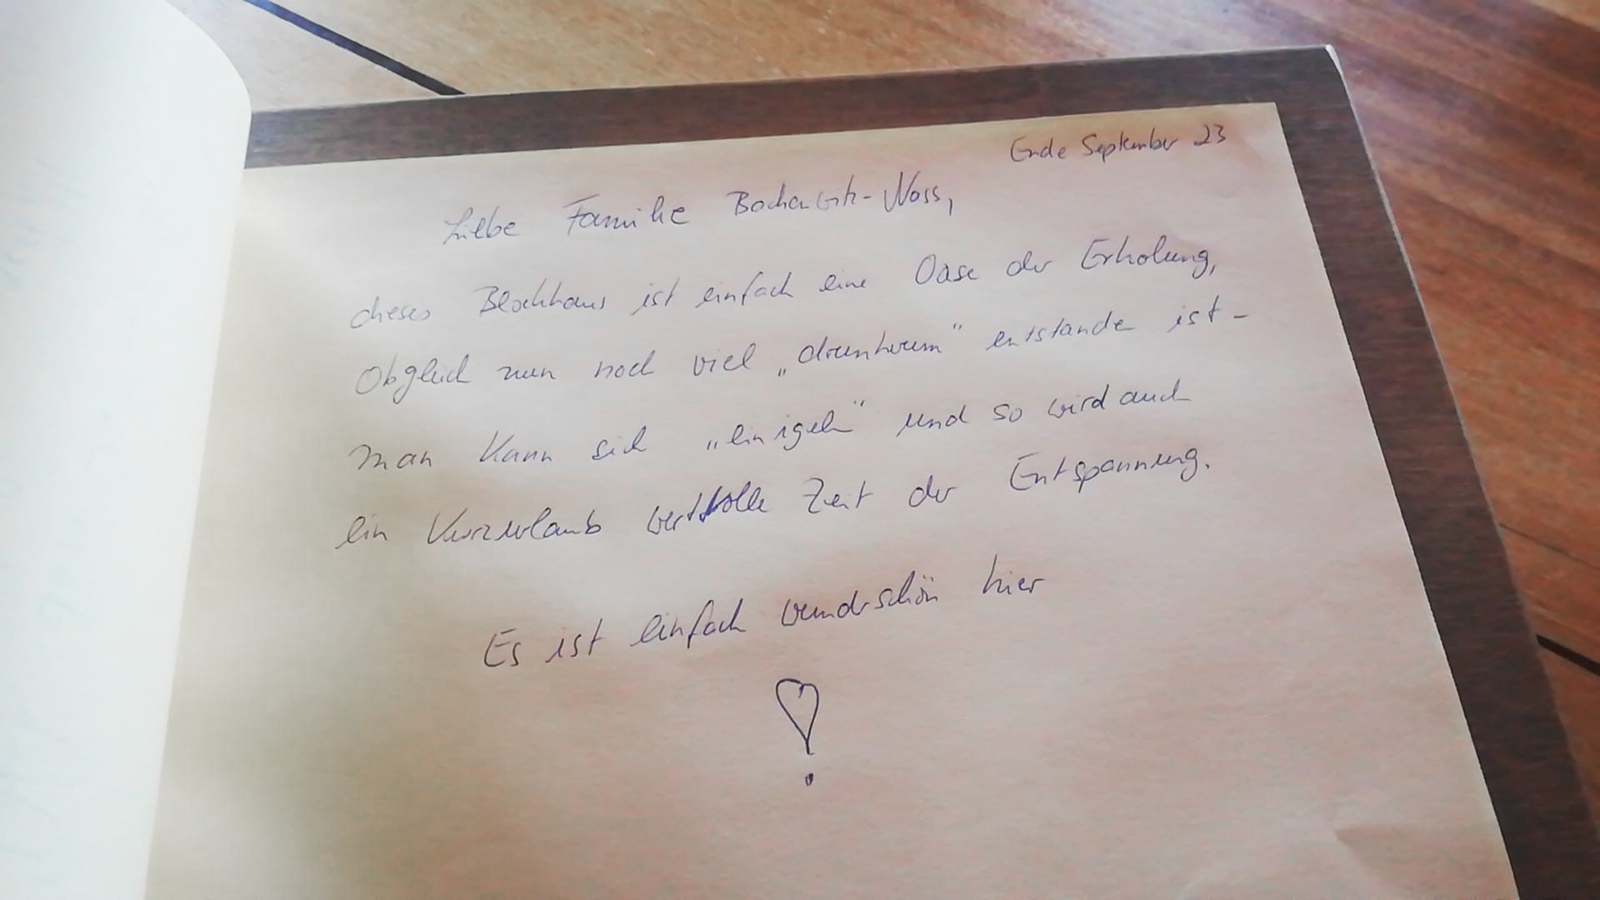 Ende September 23
Liebe Familie
dieses Blockhaus ist einfach eine Oase der Erholung,
Obgleich nun noch viel „drumherum“ entstande ist –
man kann sich „einigeln“ und so wird auch
ein Kurzurlaub wertvolle Zeit der Entspannung.
Es ist einfach wunderschön hier